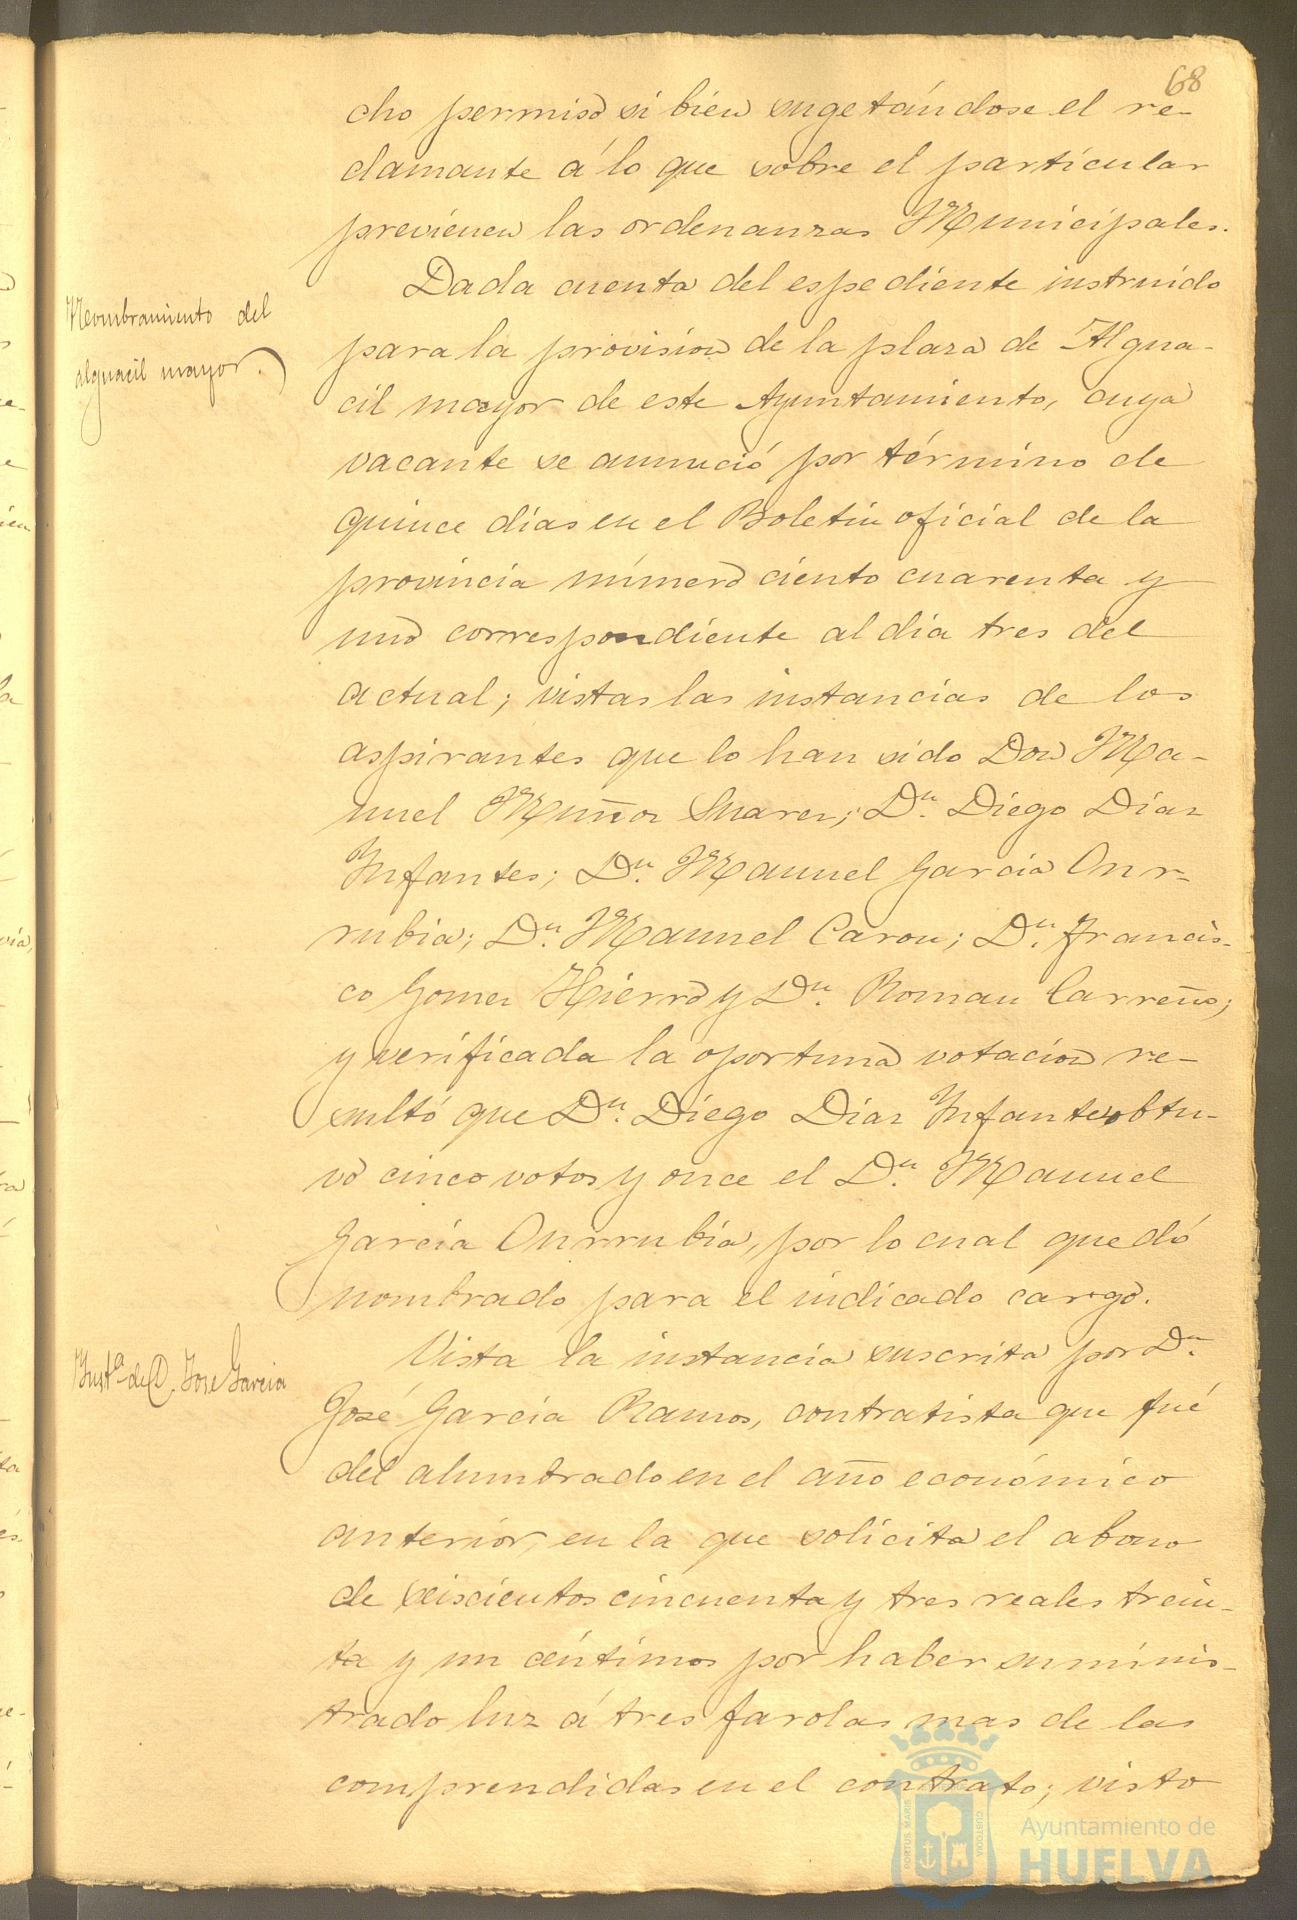 68
cho permiso si bien sugetándose el re-
clamante á lo que sobre el particular
previenen las ordenanzas Municipales.
Nombramiento del
alguacil mayor.
Dada cuenta del espediente instruido
para la provision de la plaza de Algua-
cil mayor de este Ayuntamiento, cuya
vacante se anunció por término de
quince dias en el Boletin oficial de la
provincia número ciento cuarenta y
uno correspondiente al dia tres del
actual; vistas las instancias de los
aspirantes que lo han sido Don Ma-
nuel Muñoz Suarez; Dn. Diego Diaz
Infantes; Dn. Manuel Garcia Onr-
rubia; Dn. Manuel Caron; Dn. Francis-
co Gomez Hierro y Dn. Roman Carreño;
y verificada la oportuna votacion re-
sultó que Dn. Diego Diaz Infantes obtu-
vo cinco votos y once el Dn. Manuel
Garcia Onrrubia, por lo cual quedó
nombrado para el indicado cargo.
Insta. de D. Jose Garcia
Vista la instancia suscrita por Dn.
José Garcia Ramos, contratista que fué
del alumbrado en el año económico
anterior, en la que solicita el abono
de seiscientos cincuenta y tres reales trein-
ta y un céntimos por haber suminis-
trado luz á tres farolas mas de las
comprendidas en el contrato; visto
PORTUS MARIS
CUSTODIA
Ayuntamiento de
HUELVA